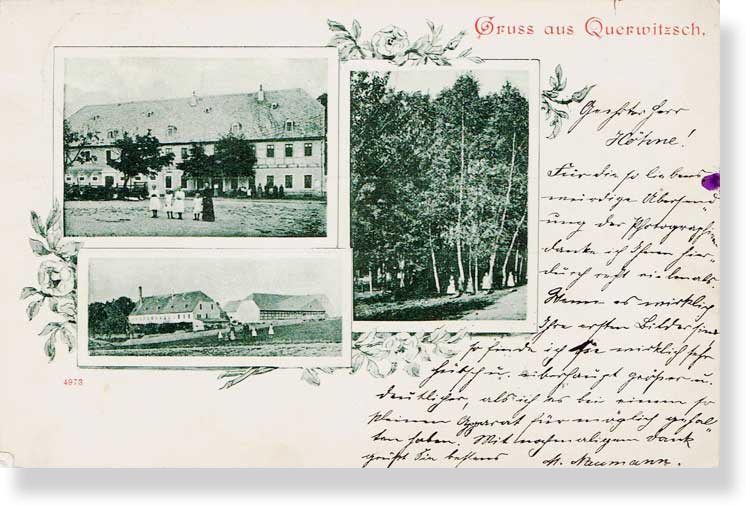 Gruss aus Querwitzsch.
Geehrter Herr
Höhne!
Für die so liebens
würdige Übersend
ung der Photographien
danke ich Ihnen hier
durch recht vielmals.
Wenn es wirklich
Ihre ersten Bilder sind
so finde ich sie wirklich sehr
hübsch u. überhaupt größer u.
deutlicher, als ich es bei einem so
kleinen Apparat für möglich gehal
ten haben. Mit nochmaligem Dank
grüßt Sie bestens M. Naumann.
4973